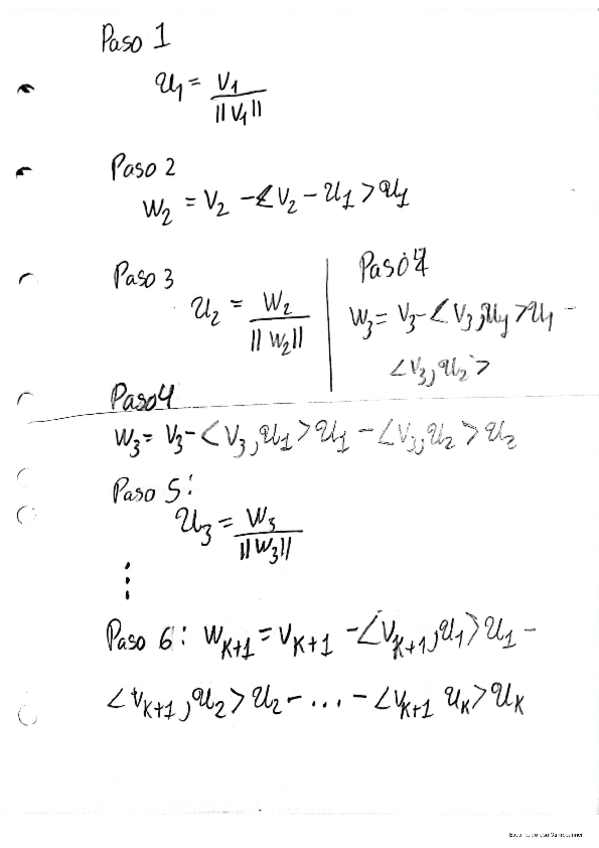 Paso 1
u₁ = v₁ / ||v₁||
Paso 2
w₂ = v₂ - <v₂ - u₁> u₁
Paso 3
u₂ = w₂ / ||w₂||
Paso 4
w₃ = v₃ - <v₃, u₁> u₁ -
<v₃, u₂>
Paso 4
w₃ = v₃ - <v₃, u₁> u₁ - <v₃, u₂> u₂
Paso 5:
u₃ = w₃ / ||w₃||
⋮
Paso 6: w_{K+1} = v_{K+1} - <v_{K+1}, u₁> u₁ -
<v_{K+1}, u₂> u₂ - ... - <v_{K+1} u_K> u_K